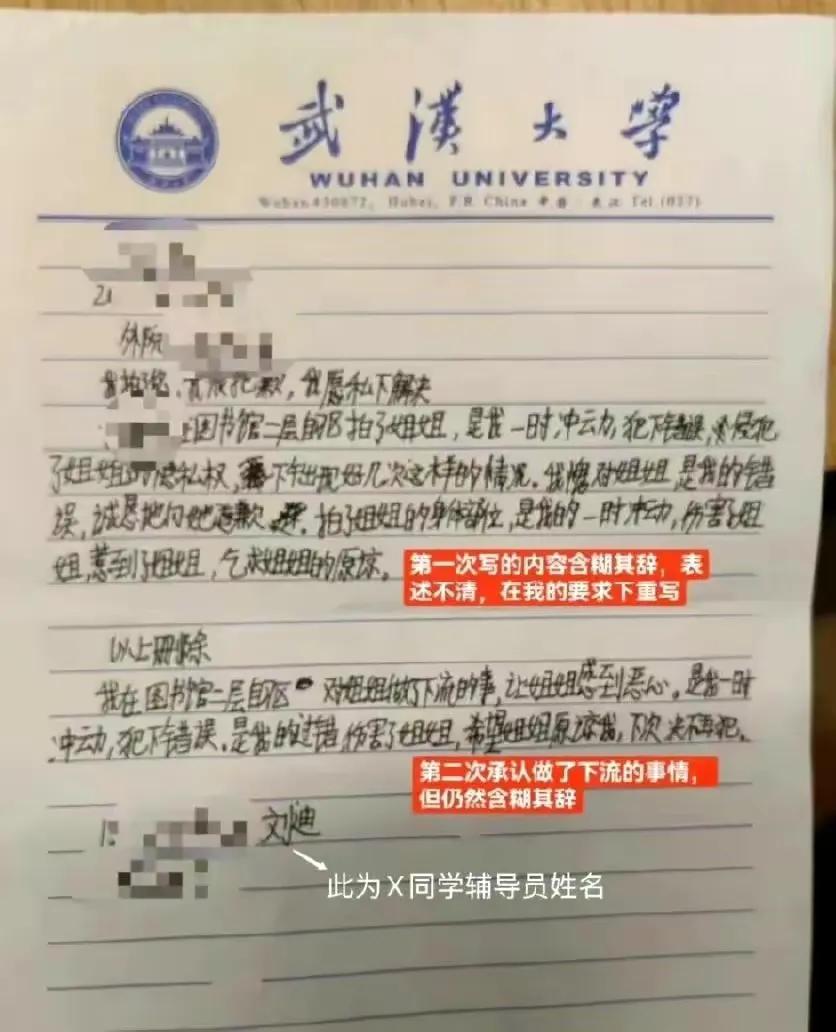 武漢大學
WUHAN UNIVERSITY
Wuhan 430072, Hubei, P.R. China 中国·武汉 Tel.(027)
外院
我愿私下解决
在图书馆二层自习区拍了姐姐，是我一时冲动，犯下错误，侵犯
了姐姐的隐私权，下午出现好几次这样的情况。我愧对姐姐，是我的错
误，诚恳地向她道歉。拍了姐姐的身体部位，是我的一时冲动，伤害了姐
姐，惹到了姐姐，乞求姐姐的原谅。
第一次写的内容含糊其辞，表
述不清，在我的要求下重写
以上删除
我在图书馆二层自习区对姐姐做了下流的事，让姐姐感到恶心。是我一时
冲动，犯下错误。是我的过错伤害了姐姐，希望姐姐原谅我，下次决不再犯。
第二次承认做了下流的事情，
但仍然含糊其辞
刘迪
此为X同学辅导员姓名